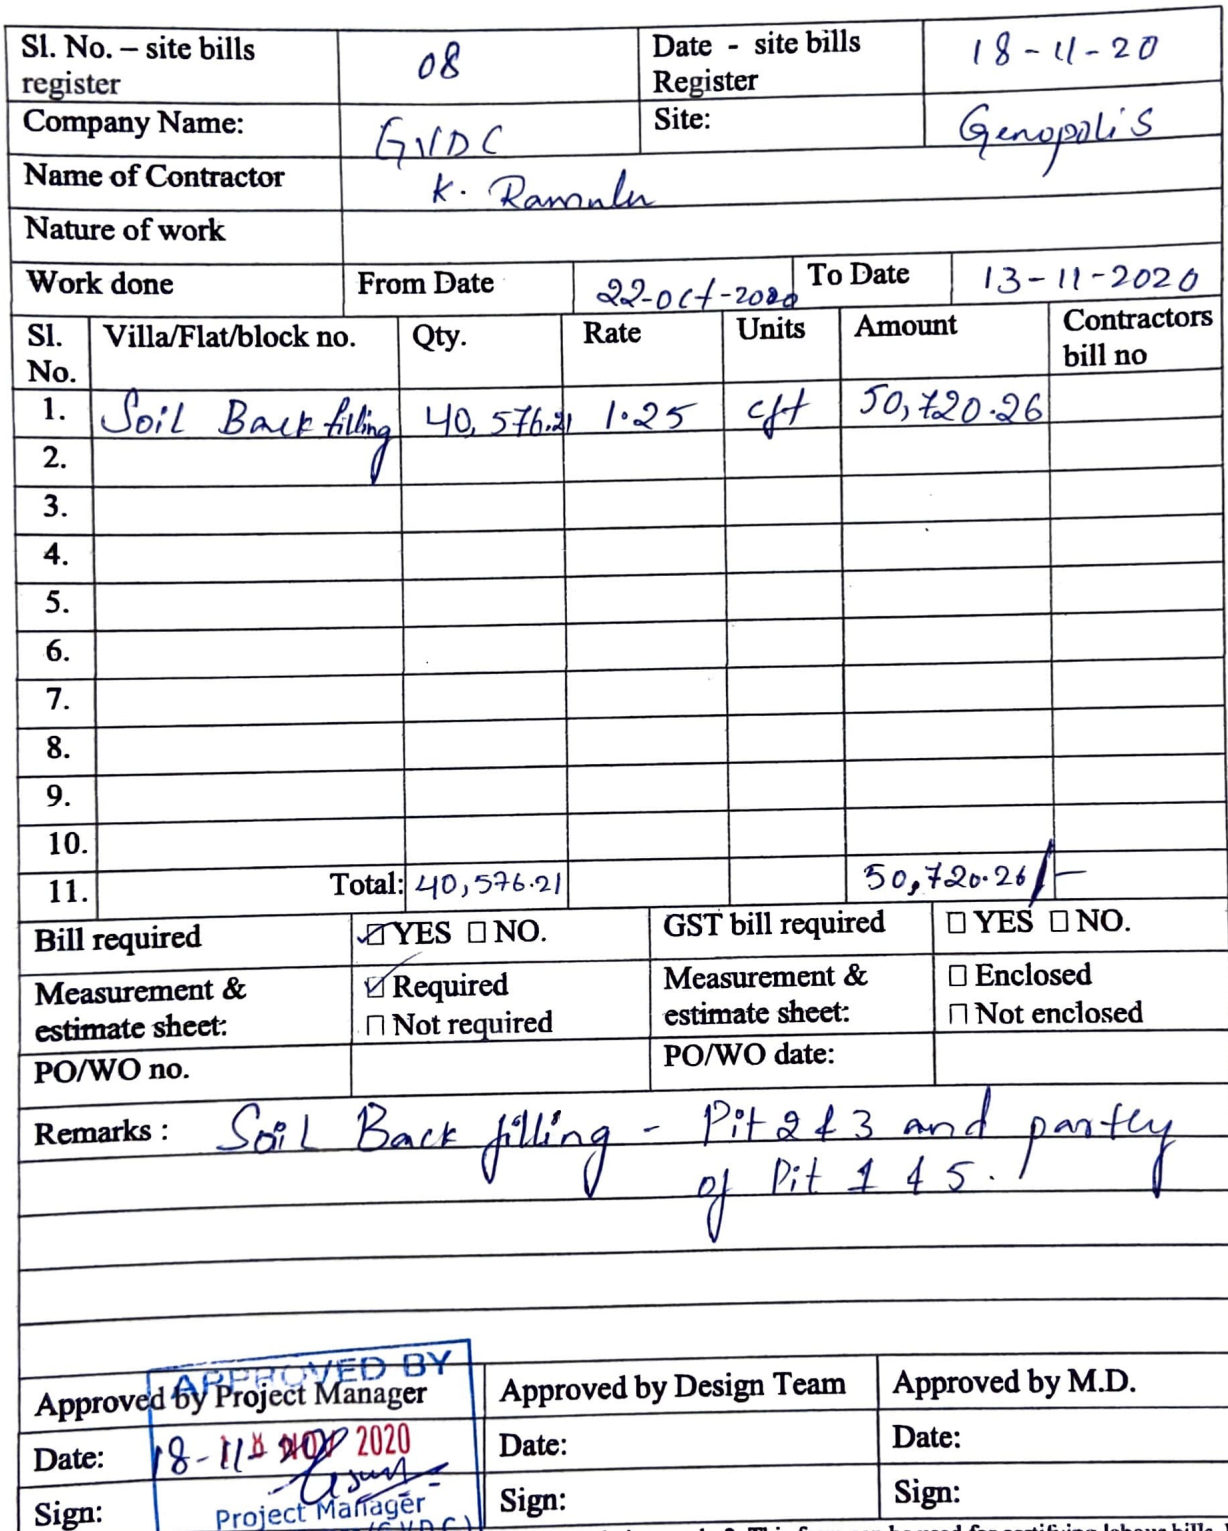 Sl. No. – site bills register 08 Date - site bills Register 18-11-20
Company Name: GVDC Site: Genopolis
Name of Contractor K. Ramulu
Nature of work
Work done From Date 22-oct-2020 To Date 13-11-2020
Sl. No. Villa/Flat/block no. Qty. Rate Units Amount Contractors bill no
1. Soil Back filling 40,576.21 1.25 cft 50,720.26
2.
3.
4.
5.
6.
7.
8.
9.
10.
11. Total: 40,576.21 50,720.26/-
Bill required ☑YES ☐NO. GST bill required ☐ YES ☐ NO.
Measurement & estimate sheet: ☑ Required ☐ Not required Measurement & estimate sheet: ☐ Enclosed ☐ Not enclosed
PO/WO no. PO/WO date:
Remarks : Soil Back filling - Pit 2 & 3 and partly
of Pit 1 & 5.
APPROVED BY
Approved by Project Manager Approved by Design Team Approved by M.D.
Date: 18-11- 2020 Date: Date:
Sign: Project Manager Sign: Sign:
(GVDC)
This form can be used for certifying labour bills